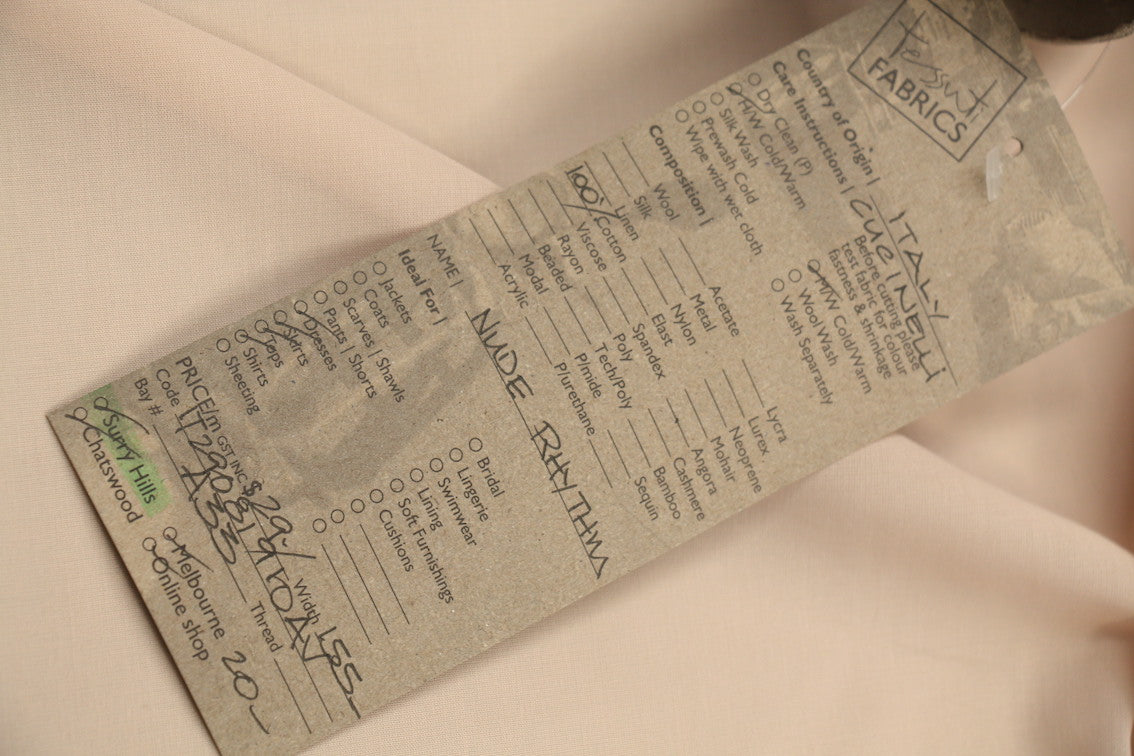 Tessuti
FABRICS
Country of Origin | ITALY
Care Instructions |
Dry Clean (P)
H/W Cold/Warm
Silk Wash
Prewash Cold
Wipe with wet cloth
Before cutting please
test fabric for colour
fastness & shrinkage
M/W Cold/Warm
Wool Wash
Wash Separately
Composition |
Wool
Silk
Linen
100% Cotton
Viscose
Rayon
Beaded
Modal
Acrylic
Acetate
Metal
Nylon
Elast
Spandex
Poly
Tech/Poly
P/mide
P/urethane
Lycra
Lurex
Neoprene
Mohair
Angora
Cashmere
Bamboo
Sequin
NAME | NUDE RHYTHM
Ideal For |
Jackets
Coats
Scarves | Shawls
Pants | Shorts
Dresses
Skirts
Tops
Shirts
Sheeting
Bridal
Lingerie
Swimwear
Lining
Soft Furnishings
Cushions
PRICE/m GST INC $29- Width 155-
Code
Bay # A33 Thread
Surry Hills
Chatswood
Melbourne
Online shop
20-